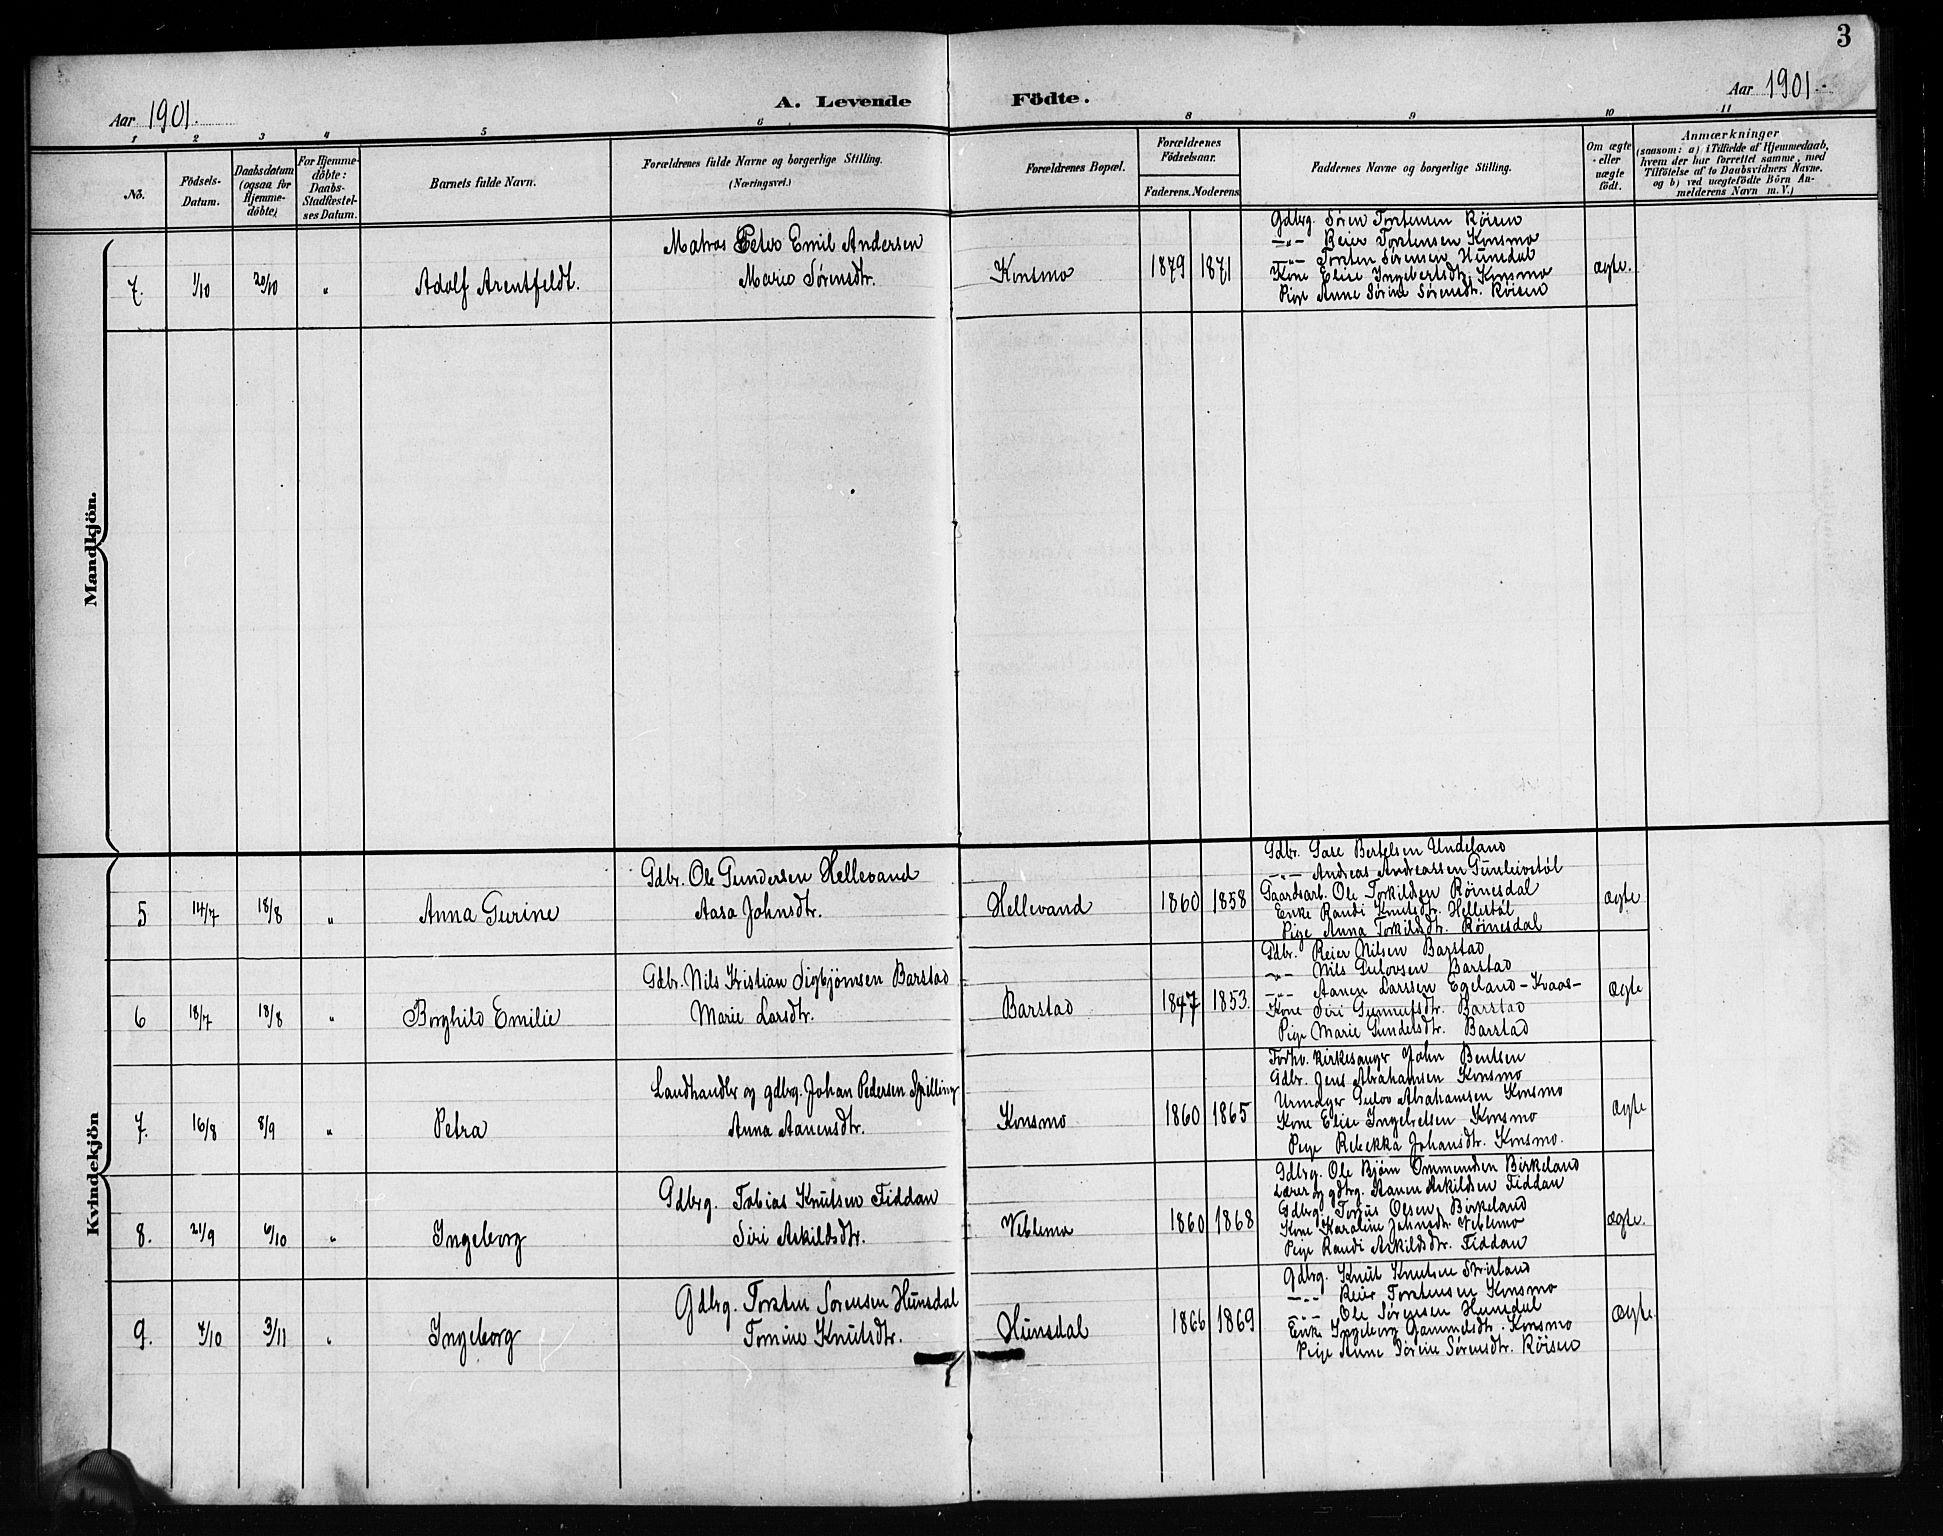 3
Aar 1901.
A. Levende Födte.
Aar 1901.
1 2 3 4 5 6 8 9 10 11
No.
Födsels-Datum.
Daabsdatum (ogsaa for Hjemmedöbte)
For Hjemmedöbte: Daabs-Stadfæstelses Datum.
Barnets fulde Navn.
Forældrenes fulde Navne og borgerlige Stilling.
(Næringsvei.)
Forældrenes Bopæl.
Forældrenes Födselsaar.
Faderens. Moderens.
Faddernes Navne og borgerlige Stilling.
Om ægte eller uægte födt.
Anmærkninger
(saasom: a) i Tilfælde af Hjemmedaab,
hvem der har forrettet samme, med
Tilföielse af to Daabsvidners Navne,
og b) ved uægtefödte Börn Anmelderens Navn m. V.)
Mandkjön.
7. 1/10 20/10 "
Adolf Arentfeldt.
Matros Peter Emil Andersen
Marie Sørensdtr.
Konsmo
1879 1871
Gdbrg. Søren Torstensen Røisen
—"— Reier Torstensen Konsmo
—"— Torsten Sørensen Hunsdal
Kone Elise Ingebertsdtr. Konsmo
Pige Anne Sørine Sørensdtr. Røisen
ægte.
Kvindekjön
5 14/7 18/8 "
Anna Gurine
Gdbr. Ole Gundersen Hellevand
Aasa Johnsdtr.
Hellevand
1860 1858
Gdbr. Bertelsen Undeland
—"— Andreas Andreassen Gunleivstøl
Gaardsarb. Ole Torkildsen Røinesdal
Enke Randi Knutsdtr. Hellestøl
Pige Anna Torkildsdtr. Røinesdal
ægte
6 18/7 18/8 "
Borghild Emilie
Gdbr. Nils Kristian Sigbjørnsen Barstad
Marie Larsdtr.
Barstad
1847 1853.
Gdbr. Reier Nilsen Barstad
—"— Nils Gulovsen Barstad
—"— Aanen Larssen Egeland-Kvaas-
Kone Siri Barstad
Pige Marie Barstad
ægte
7. 16/8 8/9 "
Petra
Landhandler og gdbrg. Johan Pedersen Spilling
Anna Aanensdtr.
Konsmo
1860 1865
Forhv. kirkesanger John Bentsen
Gdbr. Jens Abrahamsen Konsmo
Urmager Gulov Abrahamsen Konsmo
Kone Elise Konsmo
Pige Rebekka Johansdtr. Konsmo.
ægte
8. 21/9 6/10 "
Ingeborg
Gdbrg. Tobias Knutsen Fiddan
Siri Askildsdtr.
Veblemo
1860 1868
Gdbrg. Ole Bjørn Ommundsen Birkeland
Lærer og gdbrg. Aanen Askildsen Fiddan
Gdbrg. Torjus Olsen Birkeland
Kone Karoline Johnsdtr. Veblemo
Pige Randi Askildsdtr. Fiddan
ægte.
9. 7/10 3/11 "
Ingeborg
Gdbrg. Torsten Sorensen Hunsdal
Tomine Knutsdtr.
Hunsdal
1866 1869
Gdbrg. Knut Knutsen
—"— Reier Torstensen Konsmo
—"— Ole Sørensen Hunsdal
Enke Ingeborg Gammelsdtr. Konsmo
Pige Anne Sørine Sørensdtr. Røisen
ægte.